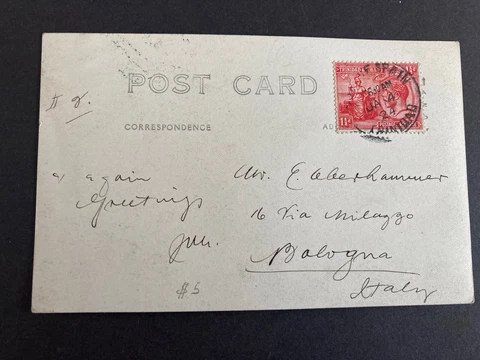 POST CARD
CORRESPONDENCE
TRINIDAD
1½ᵈ
JA 4
24
TRINIDAD
again
Greetings
Mr. E. Oberhammer
16 Via Milazzo
Bologna
Italy
$5